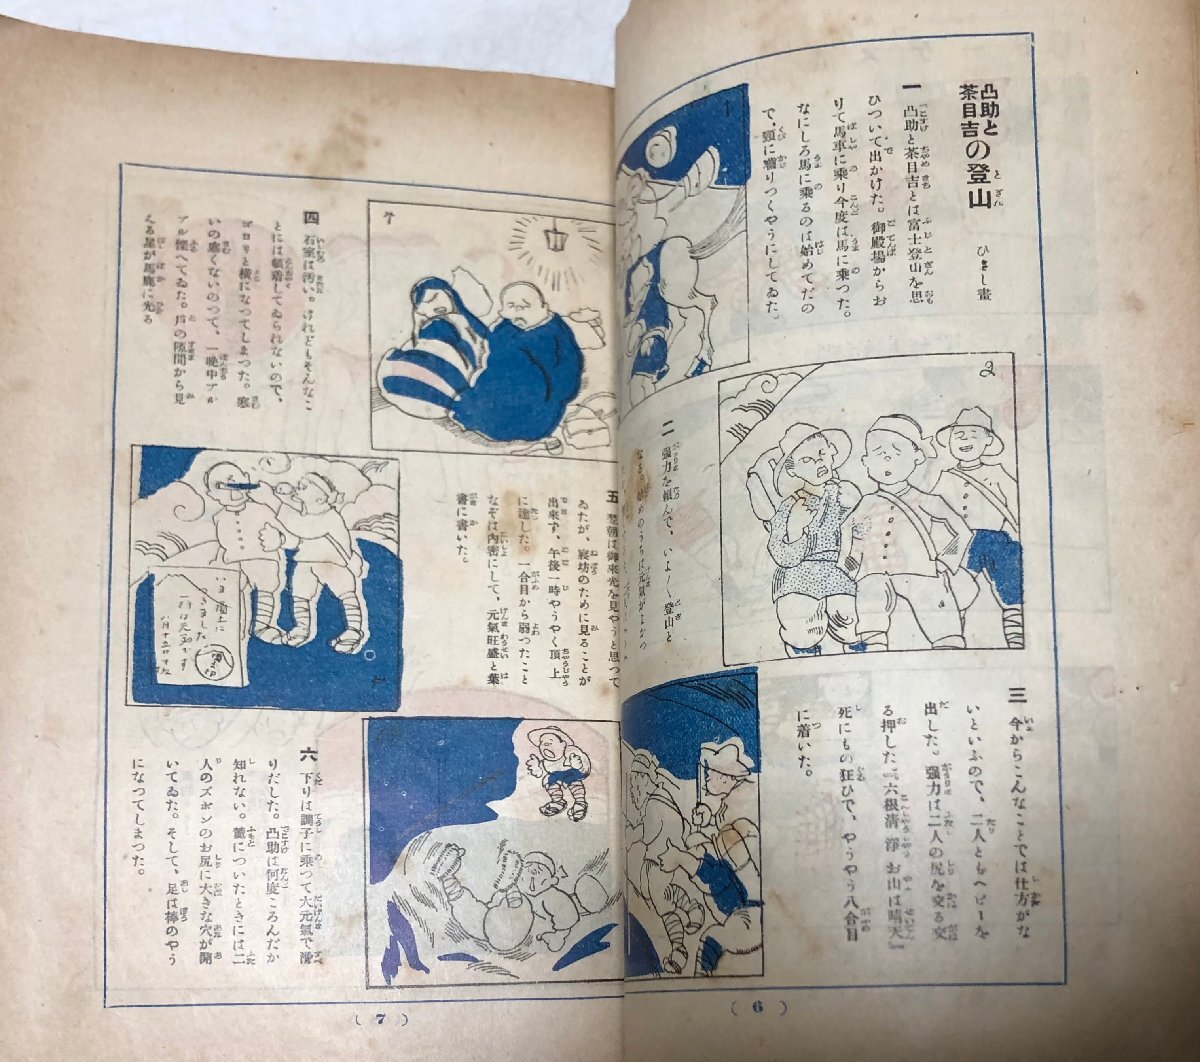 凸助と
茶目吉の登山
ひまし畫
一 凸助と茶目吉とは富士登山を思
ひついて出かけた。御殿場からお
りて馬車に乗り今度は馬に乗つた。
なにしろ馬に乗るのは始めてだの
で、頸に噛りつくやうにしてゐた。
1
2
二 强力を頼んで、いよ〱登山と
なる。始めのうちは元氣がよかつ
三 今からこんなことでは仕方がな
いといふので、二人ともヘビーを
出した。强力は二人の尻を交る交
る押した。『六根淸淨お山は晴天』
死にもの狂ひで、やうやう八合目
に着いた。
(6)
四 石室は汚い。けれどもそんなこ
とには頓着してゐられないので、
ゴロリと横になつてしまつた。寒
いの寒くないのつて、一晩中ブル
ブル慄へてゐた。戸の隙間から見
える星が馬鹿に光る
五 翌朝は御來光を見やうと思つて
ゐたが、寢坊のために見ることが
出來ず、午後一時やうやく頂上
に達した。一合目から弱つたこと
なぞは內密にして、元氣旺盛と葉
書に書いた。
いま頂上に
きました
一行は元氣です
六 下りは調子に乗つて大元氣で滑
りだした。凸助は何度ころんだか
知れない。麓についたときには二
人のズボンのお尻に大きな穴が開
いてゐた。そして、足は棒のやう
になつてしまつた。
(7)